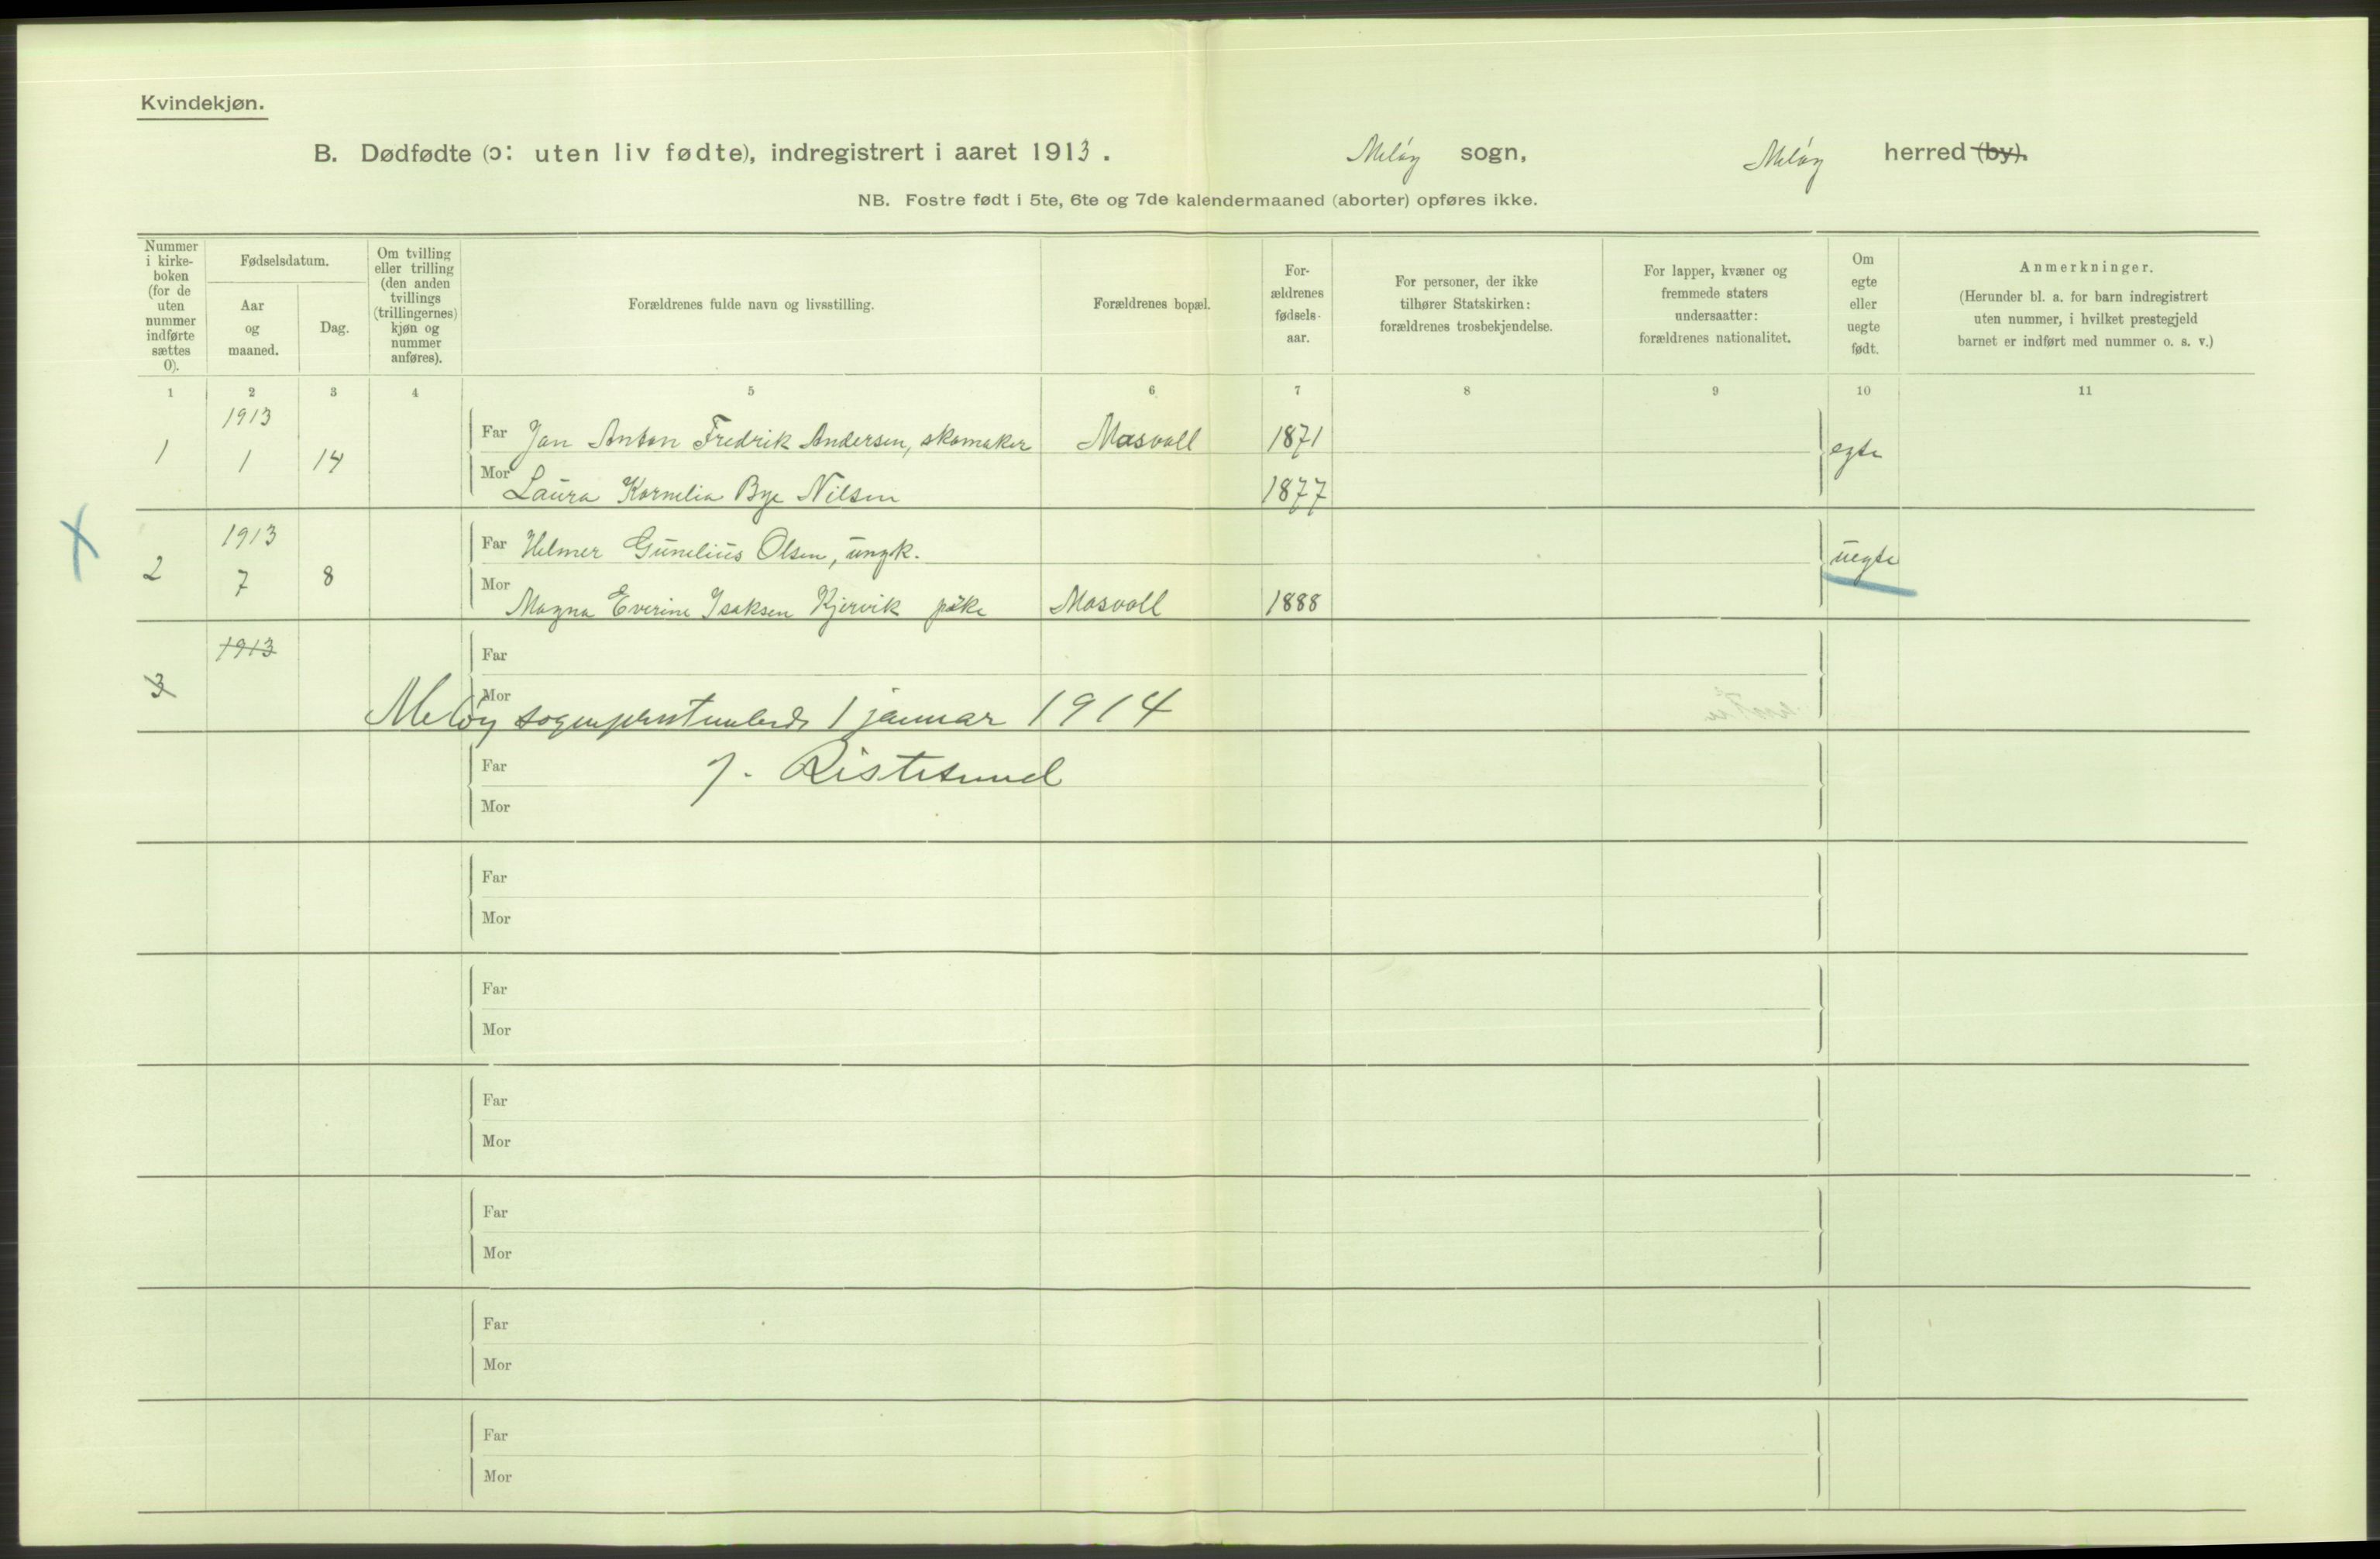 Kvindekjøn.
B. Dødfødte (ɔ: uten liv fødte), indregistrert i aaret 1913. Meløy sogn, Meløy herred (by).
NB. Fostre født i 5te, 6te og 7de kalendermaaned (aborter) opføres ikke.
Nummer i kirke- boken (for de uten nummer indførte sættes 0).
Fødselsdatum.
Aar og maaned.
Dag.
Om tvilling eller trilling (den anden tvillings (trillingernes) kjøn og nummer anføres).
Forældrenes fulde navn og livsstilling.
Forældrenes bopæl.
For- ældrenes fødsels- aar.
For personer, der ikke tilhører Statskirken: forældrenes trosbekjendelse.
For lapper, kvæner og fremmede staters undersaatter: forældrenes nationalitet.
Om egte eller uegte født.
Anmerkninger. (Herunder bl. a. for barn indregistrert uten nummer, i hvilket prestegjeld barnet er indført med nummer o. s. v.)
1 2 3 4 5 6 7 8 9 10 11
1913
1 1 14 Far Jan Anton Fredrik Andersen, skomaker Masvoll 1871 egte
Mor Laura Kornelia Bye Nilsen 1877
1913
2 7 8 Far Helmer Gunelius Olsen, ungk. uegte
Mor Magna Everine Isaksen Kjervik pike Masvoll 1888
1913
3 Far
Mor
Meløy sogneprestembede 1 januar 1914
Far J. Ristesund
Mor
Far
Mor
Far
Mor
Far
Mor
Far
Mor
Far
Mor
Far
Mor